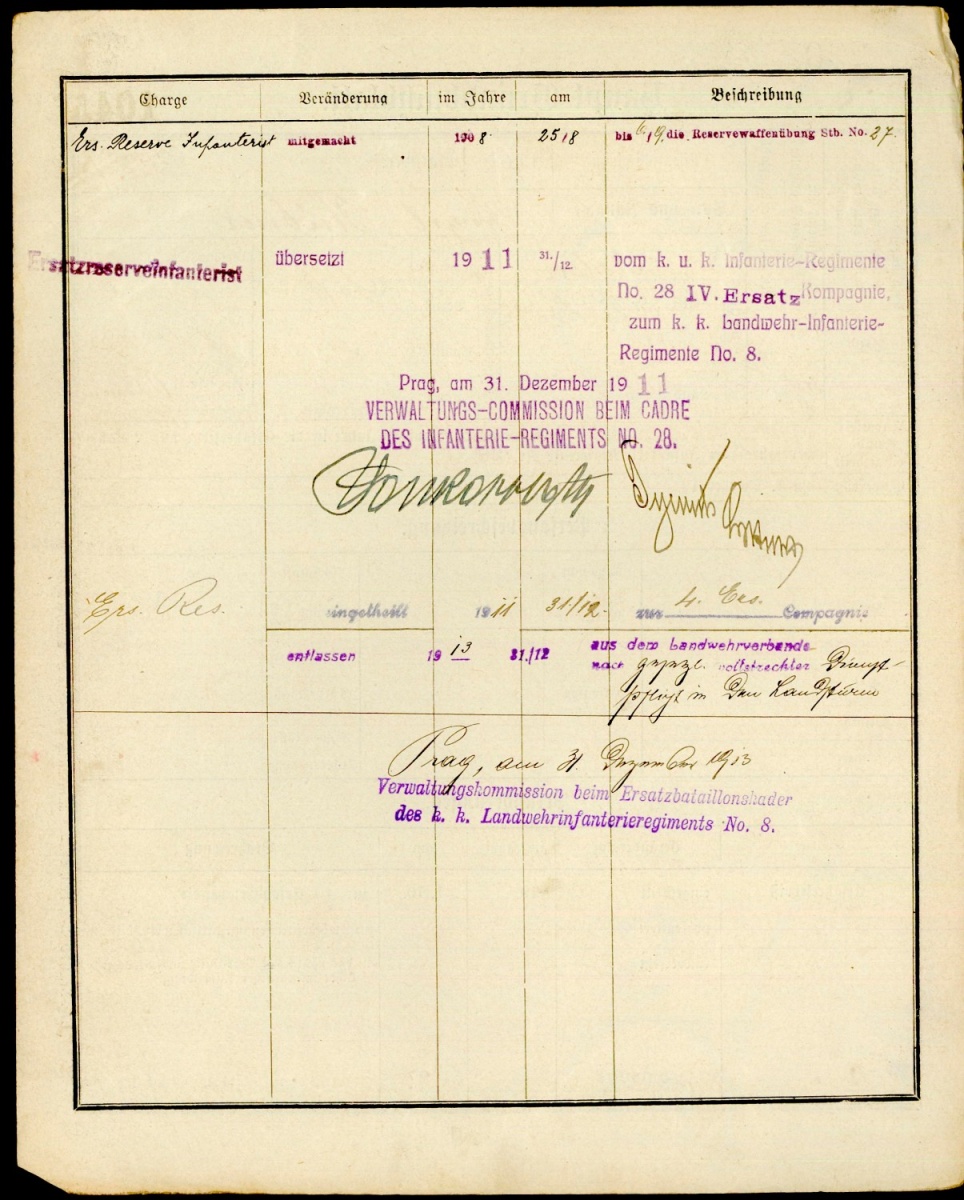 Charge Veränderung im Jahre am Beschreibung
Ers. Reserve Infanterist mitgemacht 1908 25/8 bis /9. die Reservewaffenübung Stb. No. 27.
Ersatzreserveinfanterist übersetzt 1911 31./12. vom k. u. k. Infanterie-Regimente
No. 28 IV. Ersatz Kompagnie,
zum k. k. Landwehr-Infanterie-
Regimente No. 8.
Prag, am 31. Dezember 1911
VERWALTUNGS-COMMISSION BEIM CADRE
DES INFANTERIE-REGIMENTS NO. 28.
Ers. Res. eingetheilt 1911 31./12. zur 4. Ers. Compagnie
entlassen 1913 31./12 aus dem Landwehrverbande
nach gesezl. vollstreckter Dienst-
pflicht in den Landsturm
Prag, am 31 Dezember 1913
Verwaltungskommission beim Ersatzbataillonskader
des k. k. Landwehrinfanterieregiments No. 8.